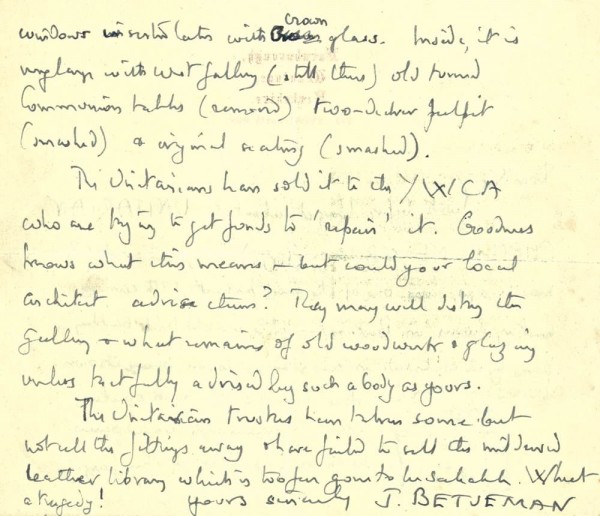 crown
windows inserted later with glass. Inside, it is
very large with west gallery (still there) old turned
Communion tables (removed) two-decker pulpit
(smashed) & original seating (smashed).
The Unitarians have sold it to the YWCA
who are trying to get funds to 'repair' it. Goodness
knows what this means – but could your local
architect advise them? They may well destroy the
gallery & what remains of old woodwork & glazing
unless tactfully advised by such a body as yours.
The Unitarian trustees have taken some but
not all the fittings away & have failed to sell the mildewed
leather library which is too far gone to be saleable. What
a tragedy! yours sincerely J. BETJEMAN